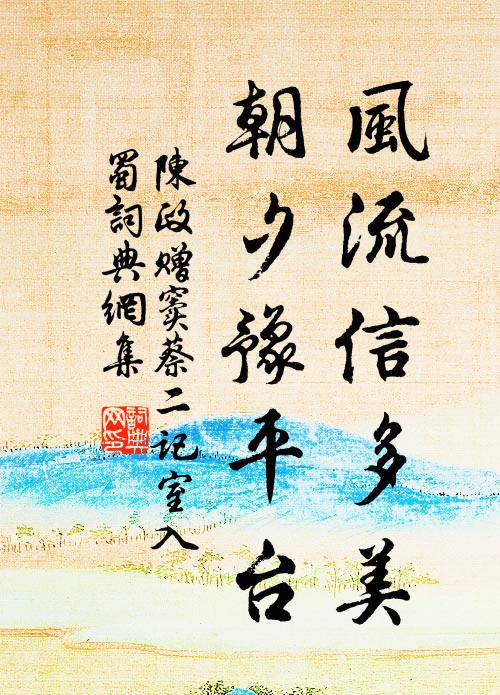 風流信多美
朝夕豫平台
陳政贈竇蔡二記室入
蜀詞典網集
詞典
网印